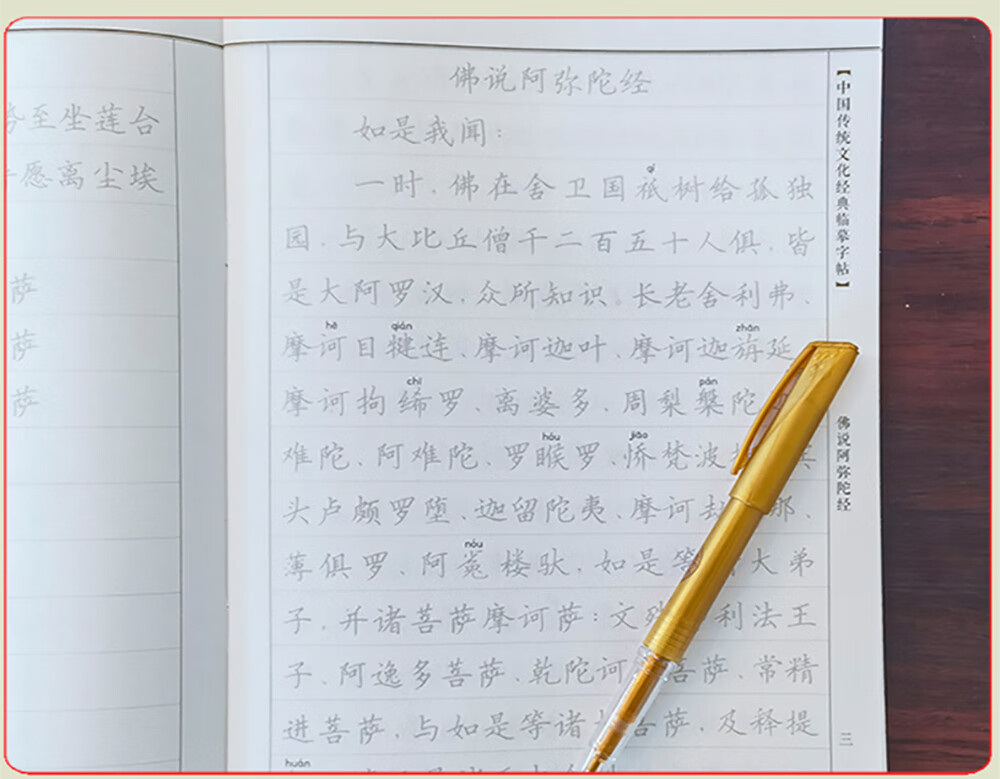 至坐莲台
愿离尘埃
萨
萨
萨
佛说阿弥陀经
如是我闻:
qí
一时,佛在舍卫国祇树给孤独
园,与大比丘僧千二百五十人俱,皆
是大阿罗汉,众所知识:长老舍利弗、
hē qián zhān
摩诃目犍连、摩诃迦叶、摩诃迦旃延
chī pán
摩诃拘絺罗、离婆多、周梨槃陀
hóu jiāo
难陀、阿难陀、罗睺罗、憍梵波
头卢颇罗堕、迦留陀夷、摩诃劫 那、
nóu
薄俱罗、阿㝹楼驮,如是等 大弟
子,并诸菩萨摩诃萨:文殊 利法王
子、阿逸多菩萨、乾陀诃 菩萨、常精
进菩萨,与如是等诸 菩萨,及释提
huán
【中国传统文化经典临摹字帖】
佛说阿弥陀经
三